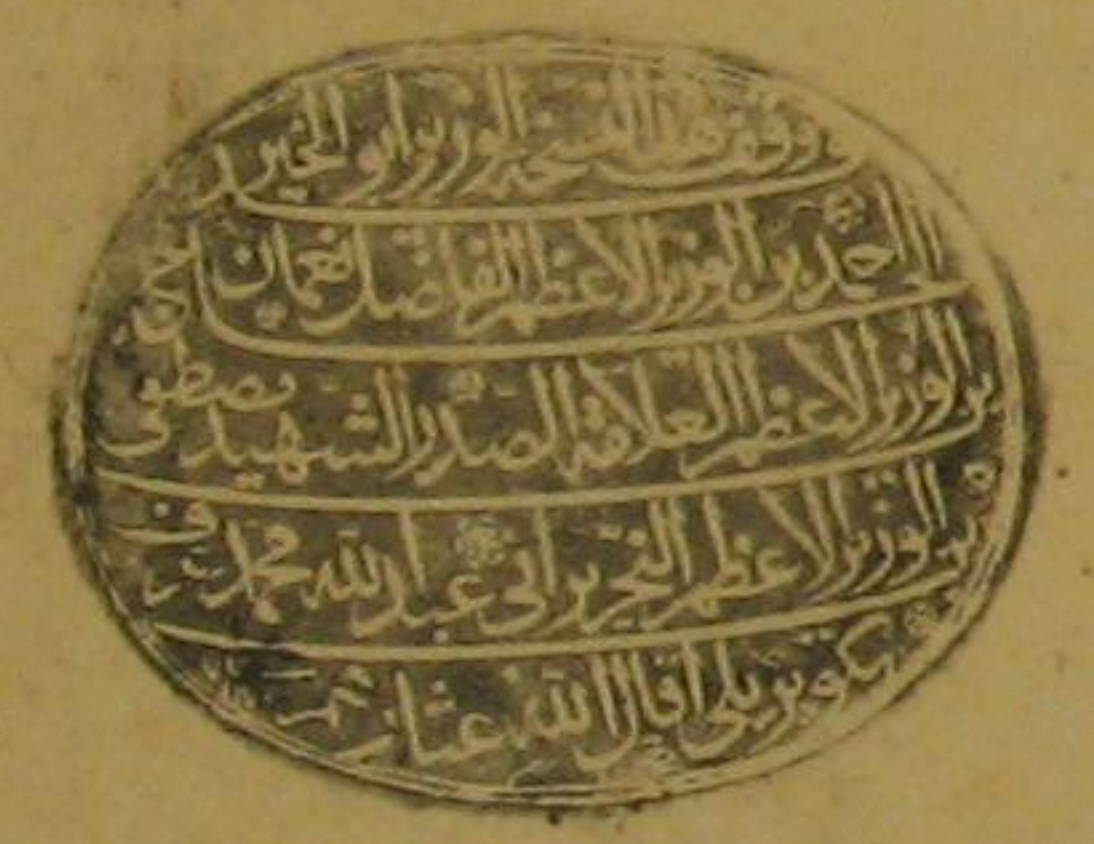 وقف هذه النسخة الوزير ابو الخير
احمد بن الوزير الاعظم الفاضل نعمان
بن الوزير الاعظم العلامة الصدر الشهيد مصطفى
بن الوزير الاعظم النحرير ابي عبد الله محمد عرف
بكوپريلي اقال الله عثارهما